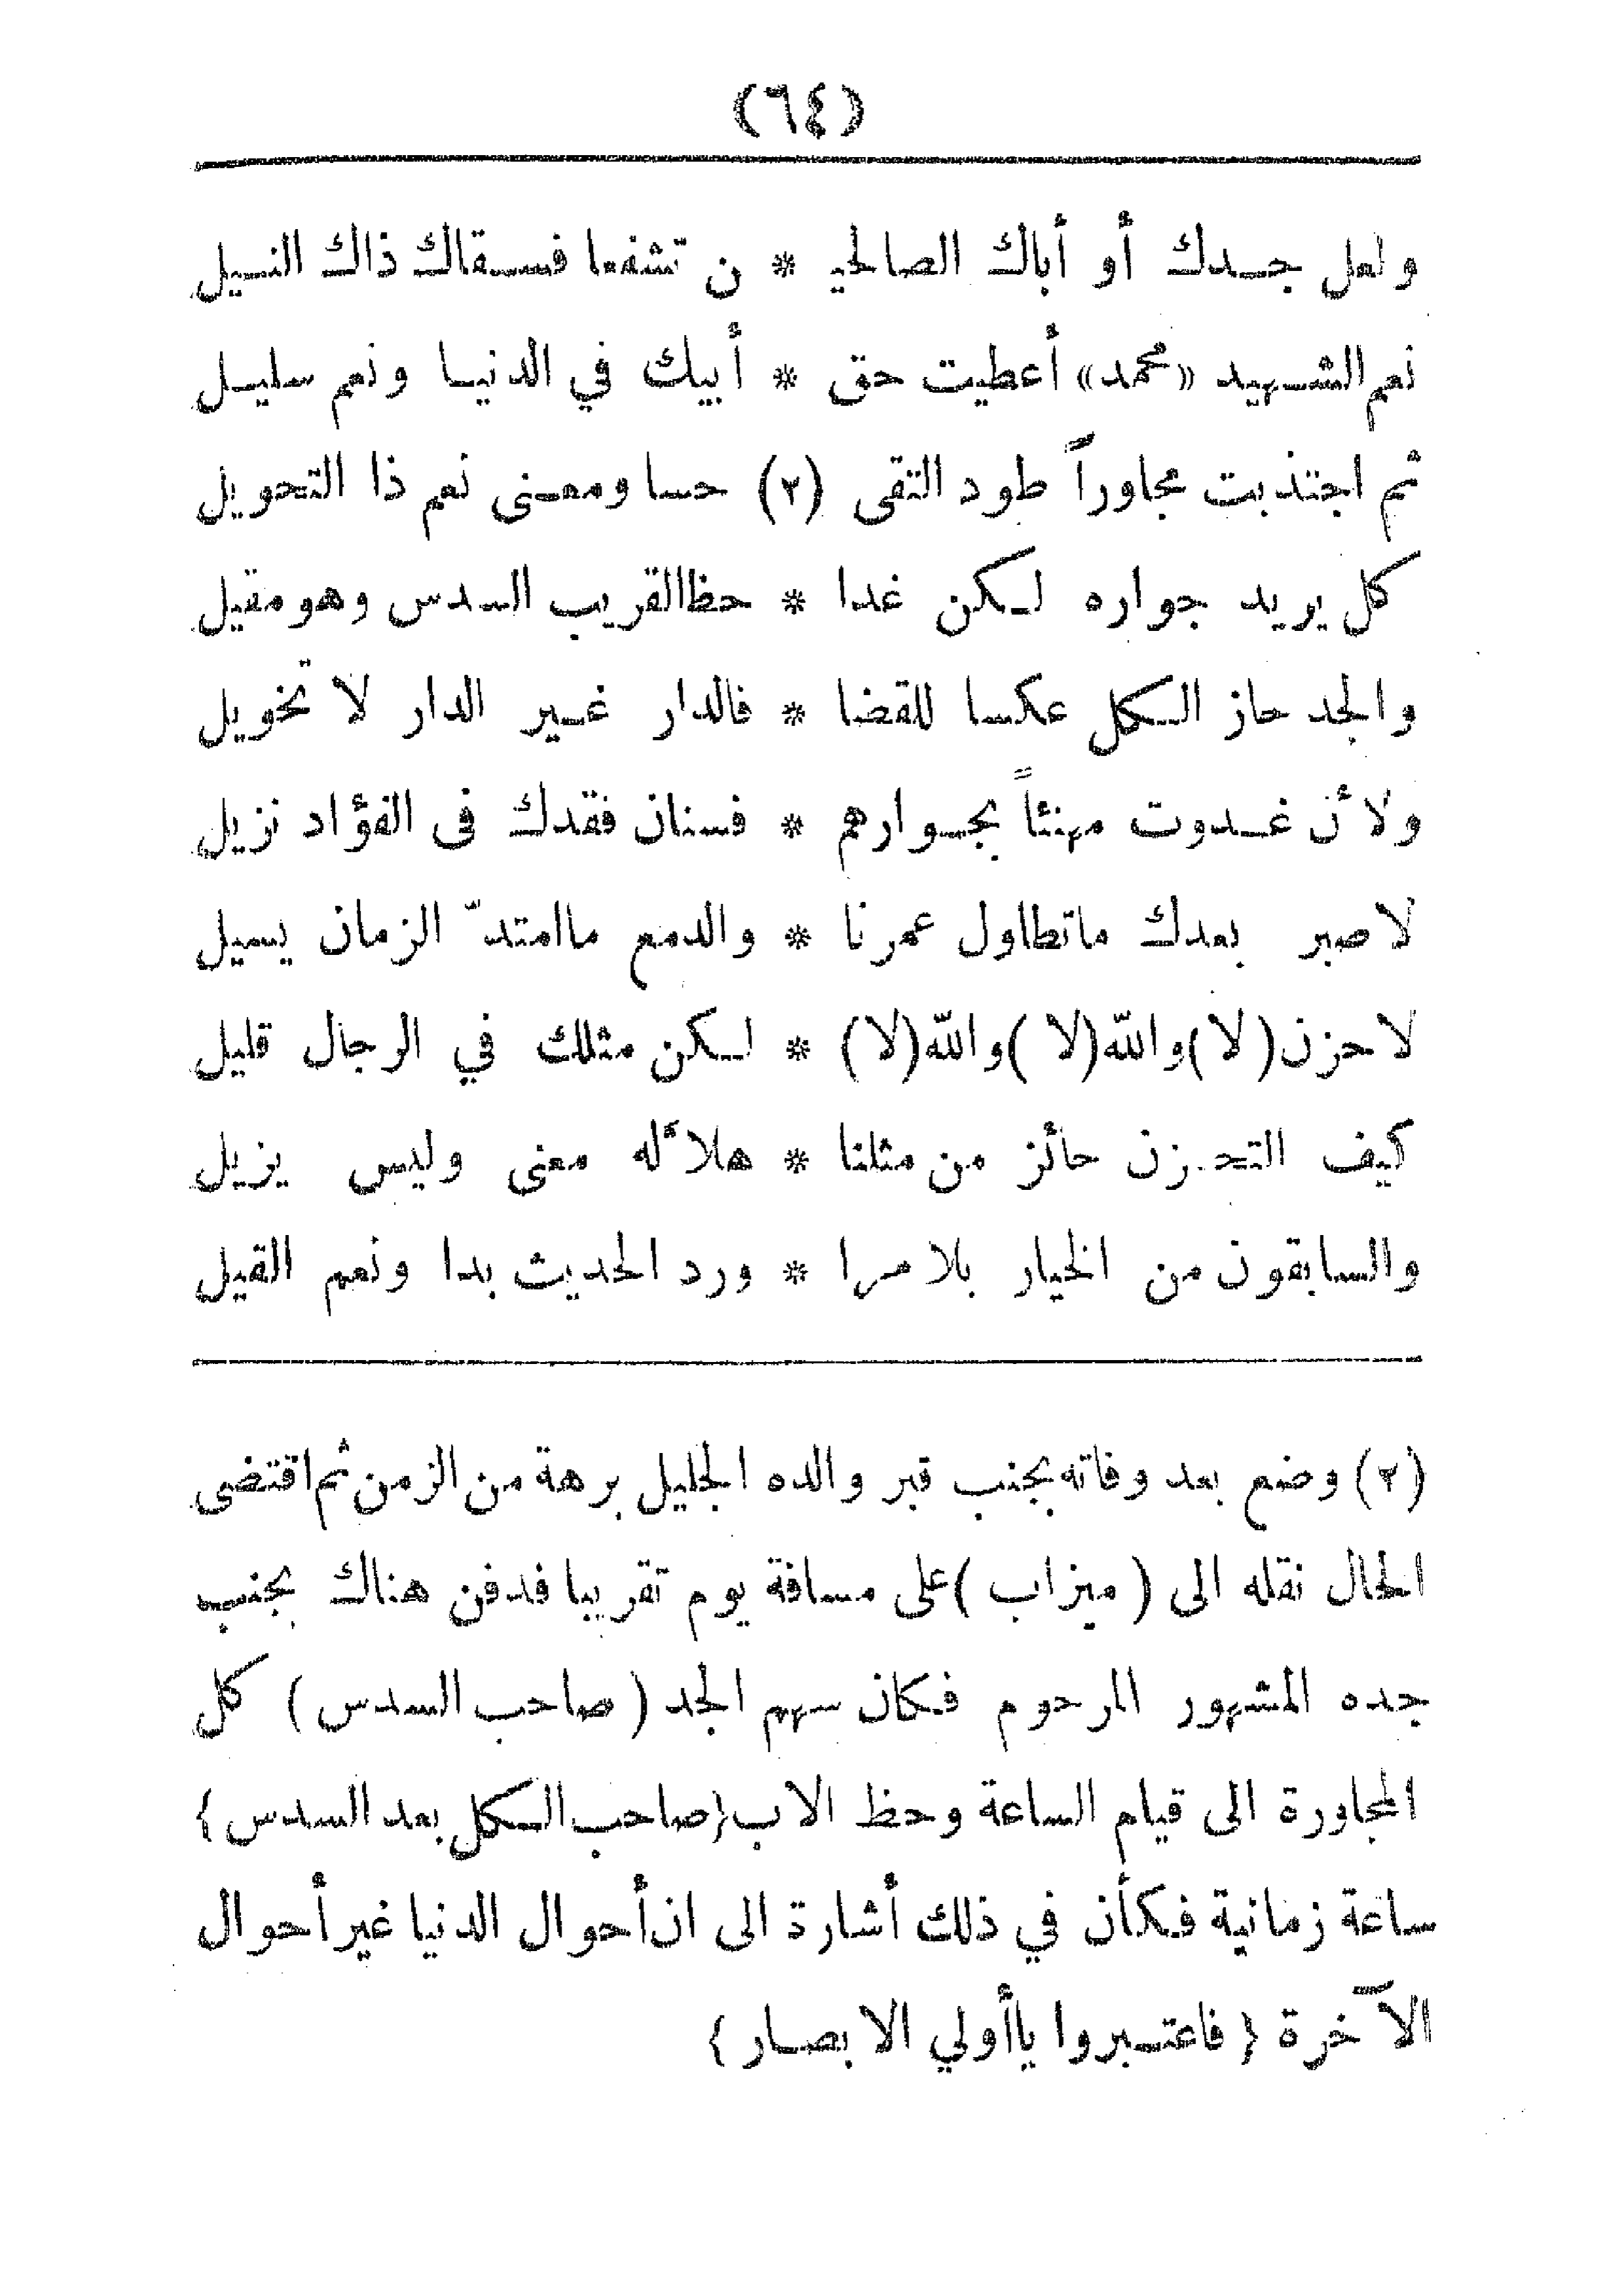 (٦٤)
ولعل جدك أو أباك الصالحيـ * ـن تشفعا فسقاك ذاك النيل
نعم الشهيد «محمد» أعطيت حق * أبيك في الدنيا ونعم سليل
ثم اجتذبت مجاوراً طود التقى (٢) حسا ومعنى نعم ذا التحويل
كل يريد جواره لكن غدا * حظ القريب السدس وهو مقيل
والجد حاز الكل عكسا للقضا * فالدار غير الدار لا تخويل
ولأن غدوت مهنئاً بجوارهم * فسنان فقدك فى الفؤاد نزيل
لا صبر بعدك ما تطاول عمرنا * والدمع ما امتدّ الزمان يسيل
لا حزن (لا) والله (لا) والله (لا) * لكن مثلك في الرجال قليل
كيف التحزن حائز من مثلنا * هلأله معنى وليس يزيل
والسابقون من الخيار بلا مرا * ورد الحديث بدا ونعم القيل
(٢) وضع بعد وفاته بجنب قبر والده الجليل برهة من الزمن ثم اقتضى
الحال نقله الى (ميزاب) على مسافة يوم تقريبا فدفن هناك بجنب
جده المشهور المرحوم فكان سهم الجد (صاحب السدس) كل
المجاورة الى قيام الساعة وحظ الاب {صاحب الكل بعد السدس}
ساعة زمانية فكأن في ذلك أشارة الى ان أحوال الدنيا غير أحوال
الآخرة {فاعتبروا يا أولي الابصار}